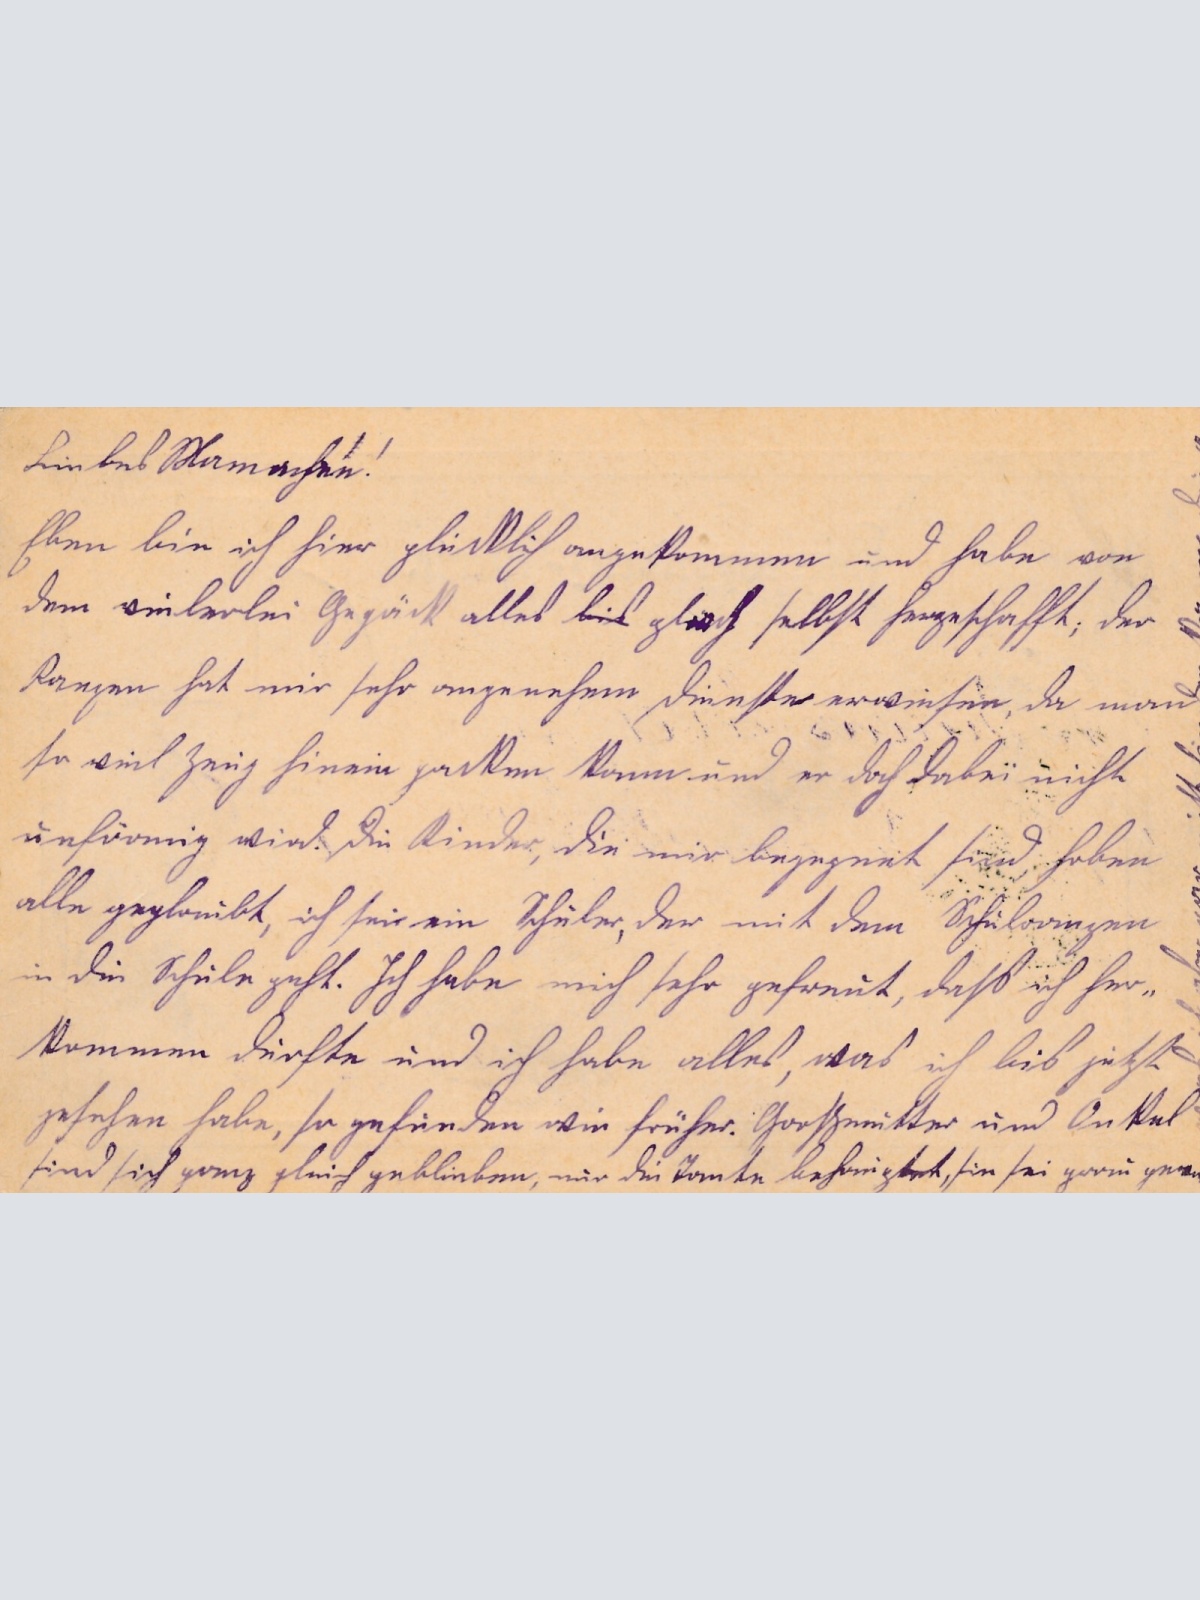 Liebes Mamachen!
Eben bin ich hier glücklich angekommen und habe von
dem vielerlei Gepäck alles bis gleich selbst hergeschafft; der
Ranzen hat mir sehr angenehem Dienste erwiesen, da man
so viel Zeug hinein packen kann und er doch dabei nicht
unförmig wird. Die Kinder, die mir begegnet sind, haben
alle geglaubt, ich sei ein Schüler, der mit dem Schulranzen
in die Schule geht. Ich habe mich sehr gefreut, daß ich her-
kommen durfte und ich habe alles, was ich bis jetzt
gesehen habe, so gefunden wie früher. Großmutter und Onkel
sind sich ganz gleich geblieben, nur die Tante behauptet, sie sei grau